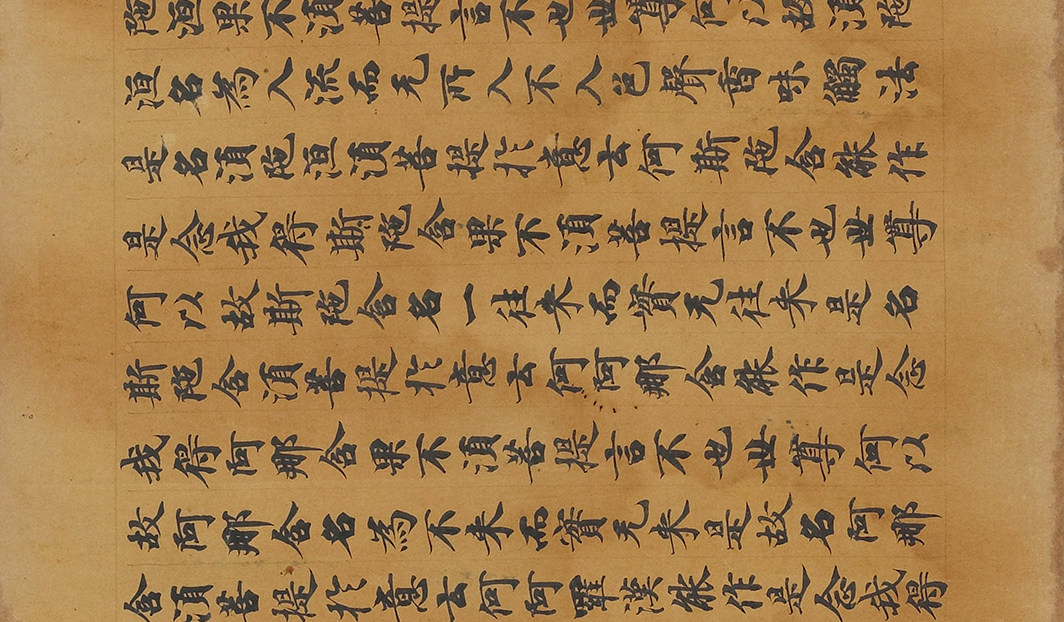 陁洹果不湏菩提言不也世尊何以故湏陁
洹名為入流而无所入不入色聲香味觸法
是名湏陁洹湏菩提扵意云何斯陁含能作
是念我得斯陁含果不湏菩提言不也世尊
何以故斯陁含名一往来而實无往来是名
斯陁含湏菩提扵意云何阿那含能作是念
我得阿那含果不湏菩提言不也世尊何以
故阿那含名為不来而實无来是故名阿那
含湏菩提扵意云何阿羅漢能作是念我得